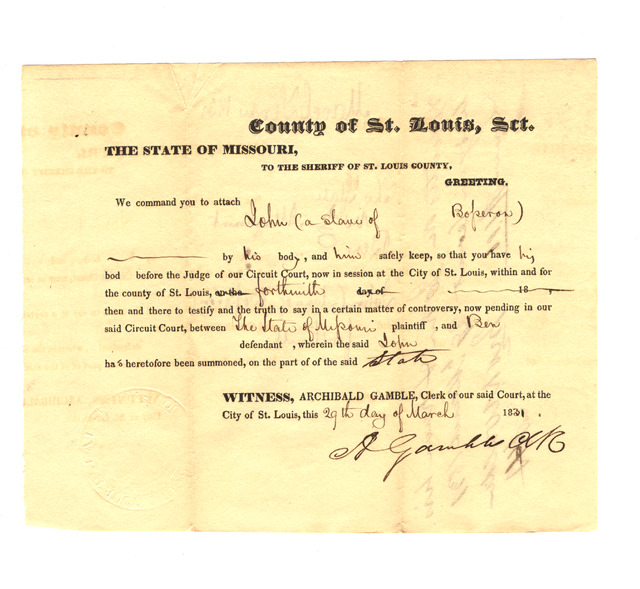 County of St. Louis, Sct.
THE STATE OF MISSOURI,
TO THE SHERIFF OF ST. LOUIS COUNTY,
GREETING.
We command you to attach John (a Slave of Boperon)
by his body, and him safely keep, so that you have his
bod before the Judge of our Circuit Court, now in session at the City of St. Louis, within and for
the county of St. Louis, on the forthwith day of 18 ,
then and there to testify and the truth to say in a certain matter of controversy, now pending in our
said Circuit Court, between The State of Missouri plaintiff , and Ben
defendant , wherein the said John
has heretofore been summoned, on the part of of the said State
WITNESS, ARCHIBALD GAMBLE, Clerk of our said Court, at the
City of St. Louis, this 29th day of March 1831.
A Gamble Clk